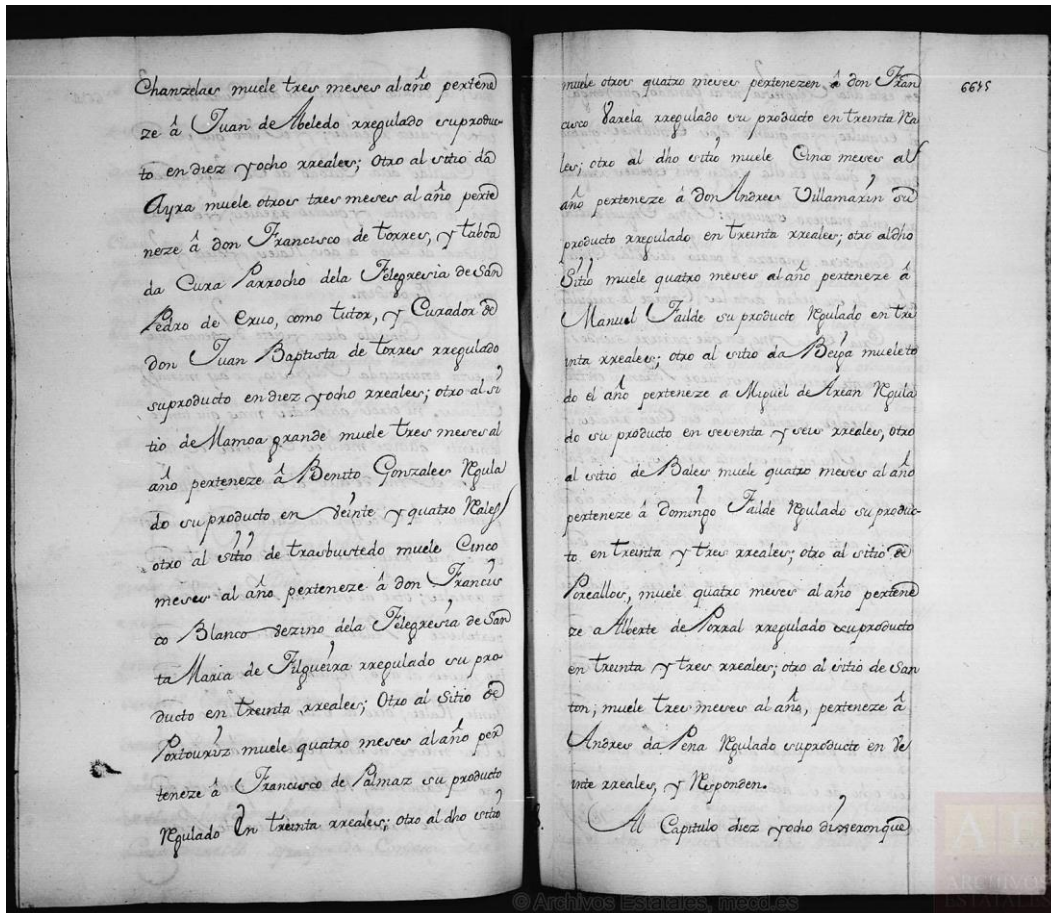 Chanzelas muele tres meses al año pertene
ze â Juan de Abeledo rregulado su produc-
to en diez y ocho rreales; otro al sitio da
Ayra muele otros tres meses al año perte
neze â don Francisco de torres, y taboa
da Cura Parrocho dela Felegresia de San
Pedro de Cruo, como tutor, y Curador de
don Juan Baptista de torres rregulado
su producto en diez y ocho rreales; otro al si
tio de Mamoa grande muele tres meses al
año perteneze â Benito Gonzales Regula
do su producto en Veinte y quatro Rales
otro al sitio de trasbustedo muele Cinco
meses al año perteneze â don Francis
co Blanco Vezino dela Felegresia de San
ta Maria de Filgueira rregulado su pro
ducto en treinta rreales; Otro al Sitio de
Portouriz muele quatro meses al año per
teneze â Francisco de Palmaz su producto
Regulado En treinta rreales; otro al dho sitio
muele otros quatro meses pertenezen â don Fran
cisco Varela rregulado su producto en treinta Rea
les; otro al dho sitio muele Cinco meses al
año perteneze â don Andres Villamarin su
producto rregulado en treinta rreales; otro al dho
Sitio muele quatro meses al año perteneze â
Manuel Failde su producto Regulado en tre
inta rreales; otro al sitio da Beiga muele to
do el año perteneze a Miguel de Arean Regula
do su producto en sesenta y seis rreales, otro
al sitio de Bales muele quatro meses al año
perteneze â Domingo Failde Regulado su produc-
to en treinta y tres rreales; otro al sitio de
Poreallos, muele quatro meses al año pertene
ze a Alberte de Porral rregulado su producto
en treinta y tres rreales; otro al sitio de San
ton; muele tres meses al año, perteneze â
Andres da Pena Regulado su producto en Ve
inte rreales, y Responden.
Al Capitulo diez y ocho dixeron que
6695
© Archivos Estatales, mecd.es
AL
ARCHIVOS
ESTATALES